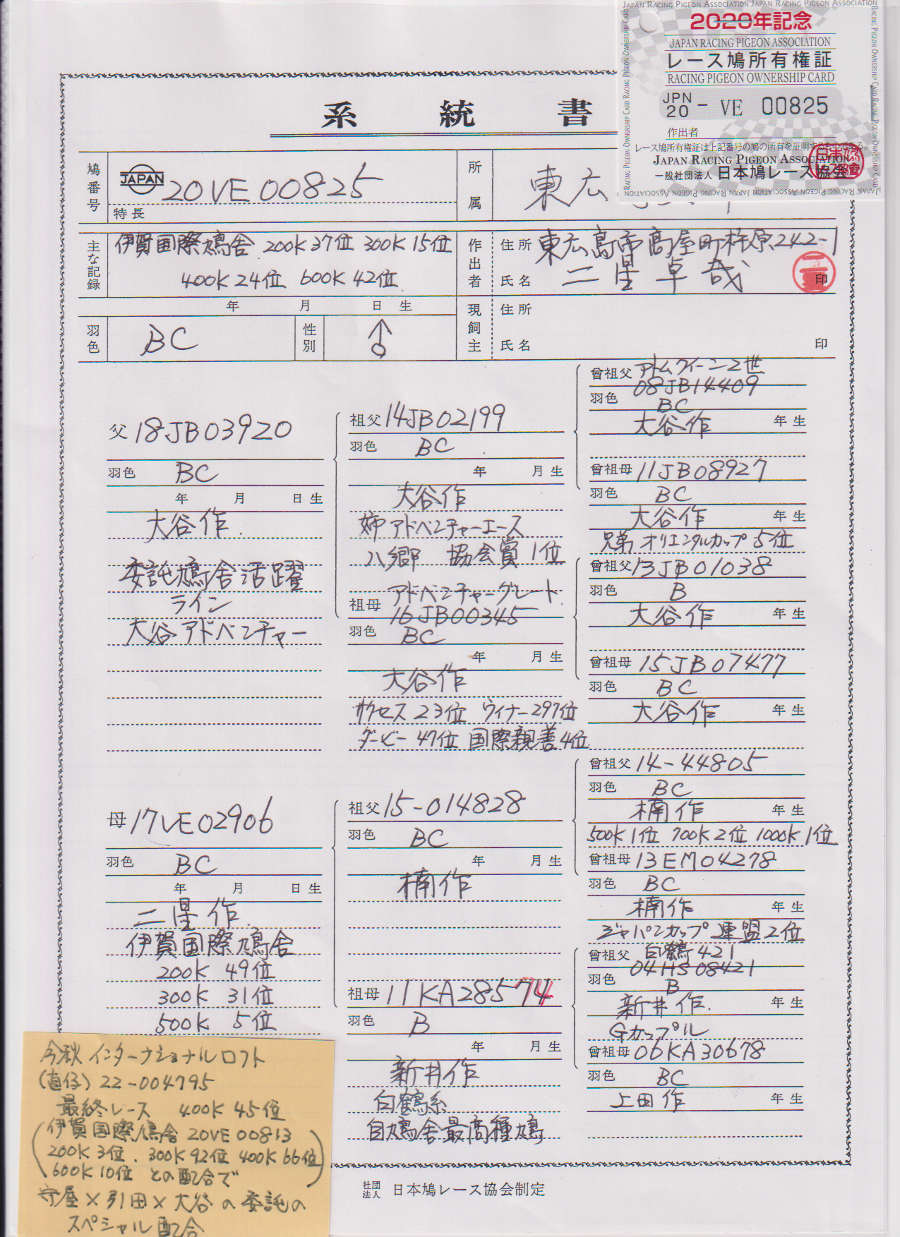 JAPAN RACING PIGEON ASSOCIATION JAPAN RACING PIGEON ASSOCIATION
2020年記念
JAPAN RACING PIGEON ASSOCIATION
レース鳩所有権証
RACING PIGEON OWNERSHIP CARD
JPN 20 - VE 00825
作出者
レース鳩所有権証は上記番号の鳩の所有を証明する
JAPAN RACING PIGEON ASSOCIATION
一般社団法人 日本鳩レース協会
系統書
鳩番号 JAPAN 20VE00825
特長
所属 東広
主な記録 伊賀国際鳩舎 200K37位 300K15位
400K24位 600K42位
作出者 住所 東広島市高屋町杵原242-1
氏名 二星卓哉 印
年 月 日生
羽色 BC 性別 ♂
現飼主 住所
氏名 印
父 18JB03920
羽色 BC
年 月 日生
大谷作
委託鳩舎活躍
ライン
大谷アドベンチャー
祖父 14JB02199
羽色 BC
年 月生
大谷作
姉アドベンチャーエース
八郷 協会賞1位
アドベンチャーグレート
祖母 16JB00345
羽色 BC
年 月生
大谷作
サクセス23位 ウイナー297位
ダービー47位 国際親善4位
アトムクイーン2世
曾祖父 08JB14409
羽色 BC
大谷作 年生
曾祖母 11JB08927
羽色 BC
大谷作 年生
兄弟 オリエンタルカップ5位
曾祖父 13JB01038
羽色 B
大谷作 年生
曾祖母 15JB07477
羽色 BC
大谷作 年生
母 17VE02906
羽色 BC
年 月 日生
二星作
伊賀国際鳩舎
200K 49位
300K 31位
500K 5位
祖父 15-014828
羽色 BC
年 月生
楠作
祖母 11KA28574
羽色 B
年 月生
新井作
白鶴系
自鳩舎最高種鳩
曾祖父 14-44805
羽色 BC
楠作 年生
500K1位 700K2位 1000K1位
曾祖母 13EM04278
羽色 BC
楠作 年生
ジャパンカップ連盟2位
白鶴421
曾祖父 04HS08421
羽色 B
新井作 年生
Gカップル
曾祖母 06KA30678
羽色 BC
上田作 年生
今秋インターナショナルロフト
(直仔) 22-004795
最終レース 400K 45位
(伊賀国際鳩舎 20VE00813
200K3位. 300K92位 400K66位
600K10位 との配合で)
守屋×引田×大谷の委託の
スペシャル配合
社団法人 日本鳩レース協会制定